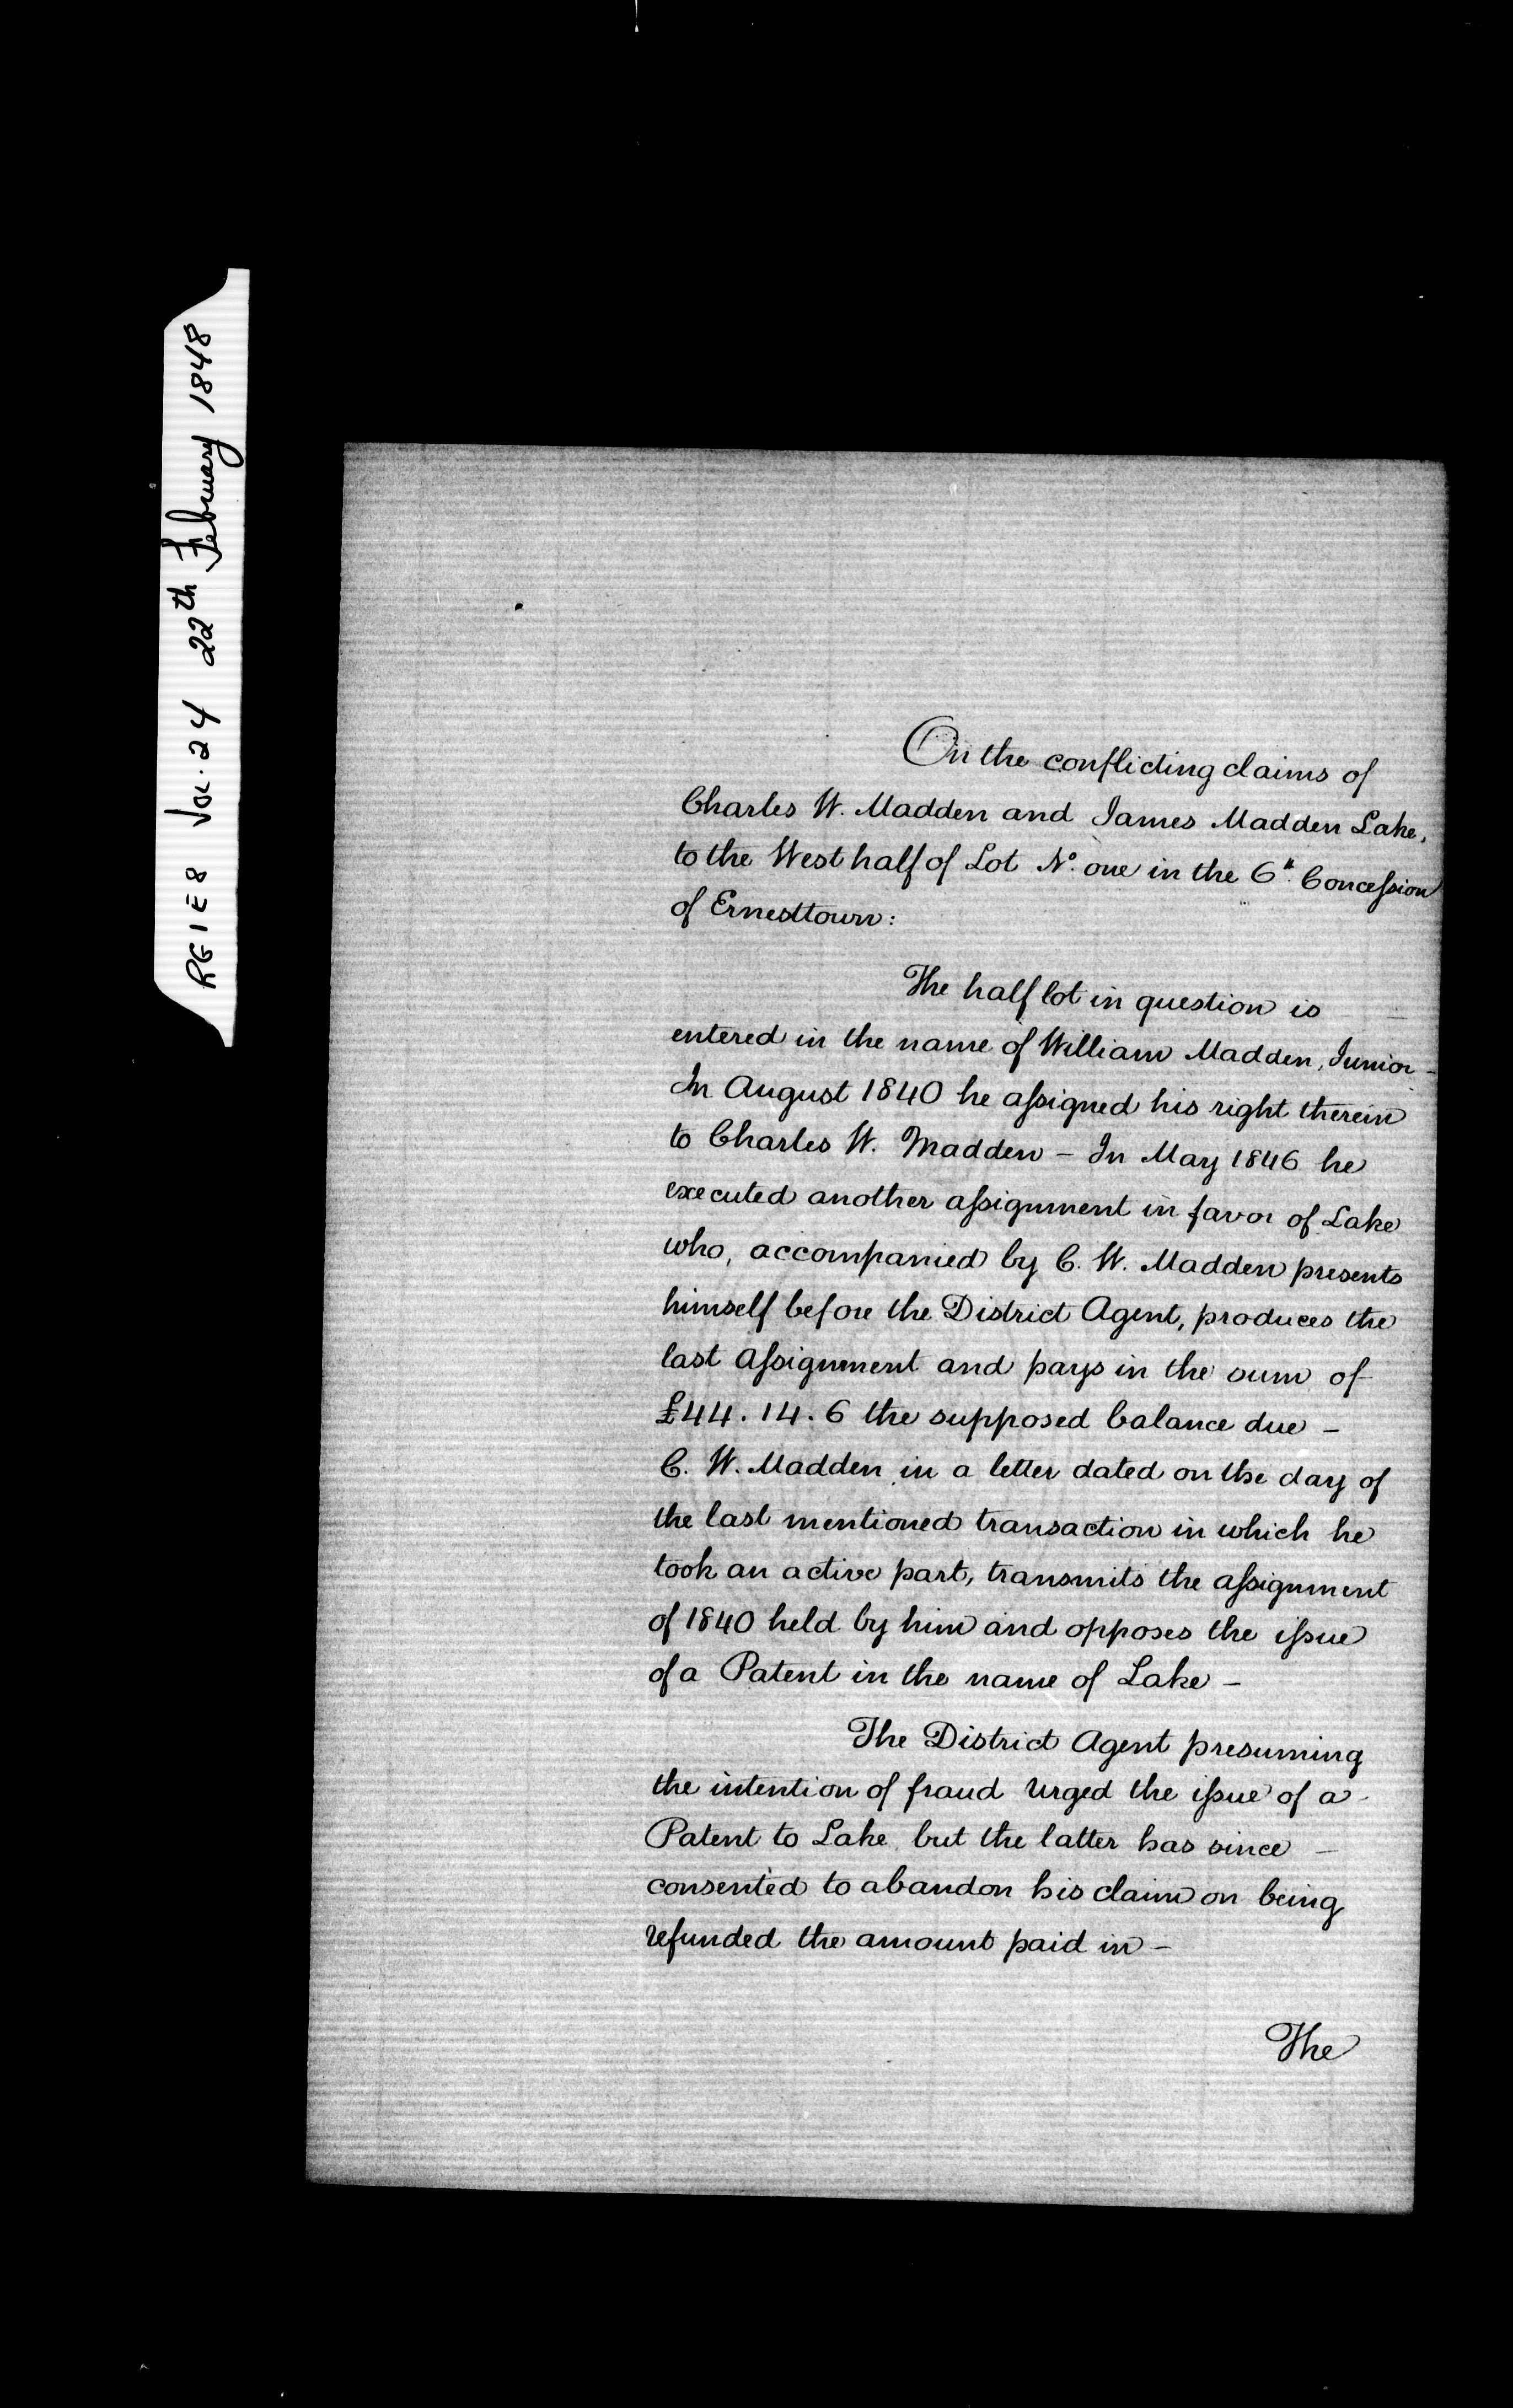 RG1E8 Vol. 24 22th February 1848
On the conflicting claims of
Charles W. Madden and James Madden Lake,
to the West half of Lot No. one in the 6th Concession
of Ernesttown:
The half lot in question is
entered in the name of William Madden, Junior -
In August 1840 he assigned his right therein
to Charles W. Madden - In May 1846 he
executed another assignment in favor of Lake
who, accompanied by C. W. Madden presents
himself before the District Agent, produces the
last Assignment and pays in the sum of
£44.14.6 the supposed balance due -
C. W. Madden in a letter dated on the day of
the last mentioned transaction in which he
took an active part, transmits the assignment
of 1840 held by him and opposes the issue
of a Patent in the name of Lake -
The District Agent presuming
the intention of fraud urged the issue of a
Patent to Lake but the latter has since -
consented to abandon his claim on being
refunded the amount paid in -
The